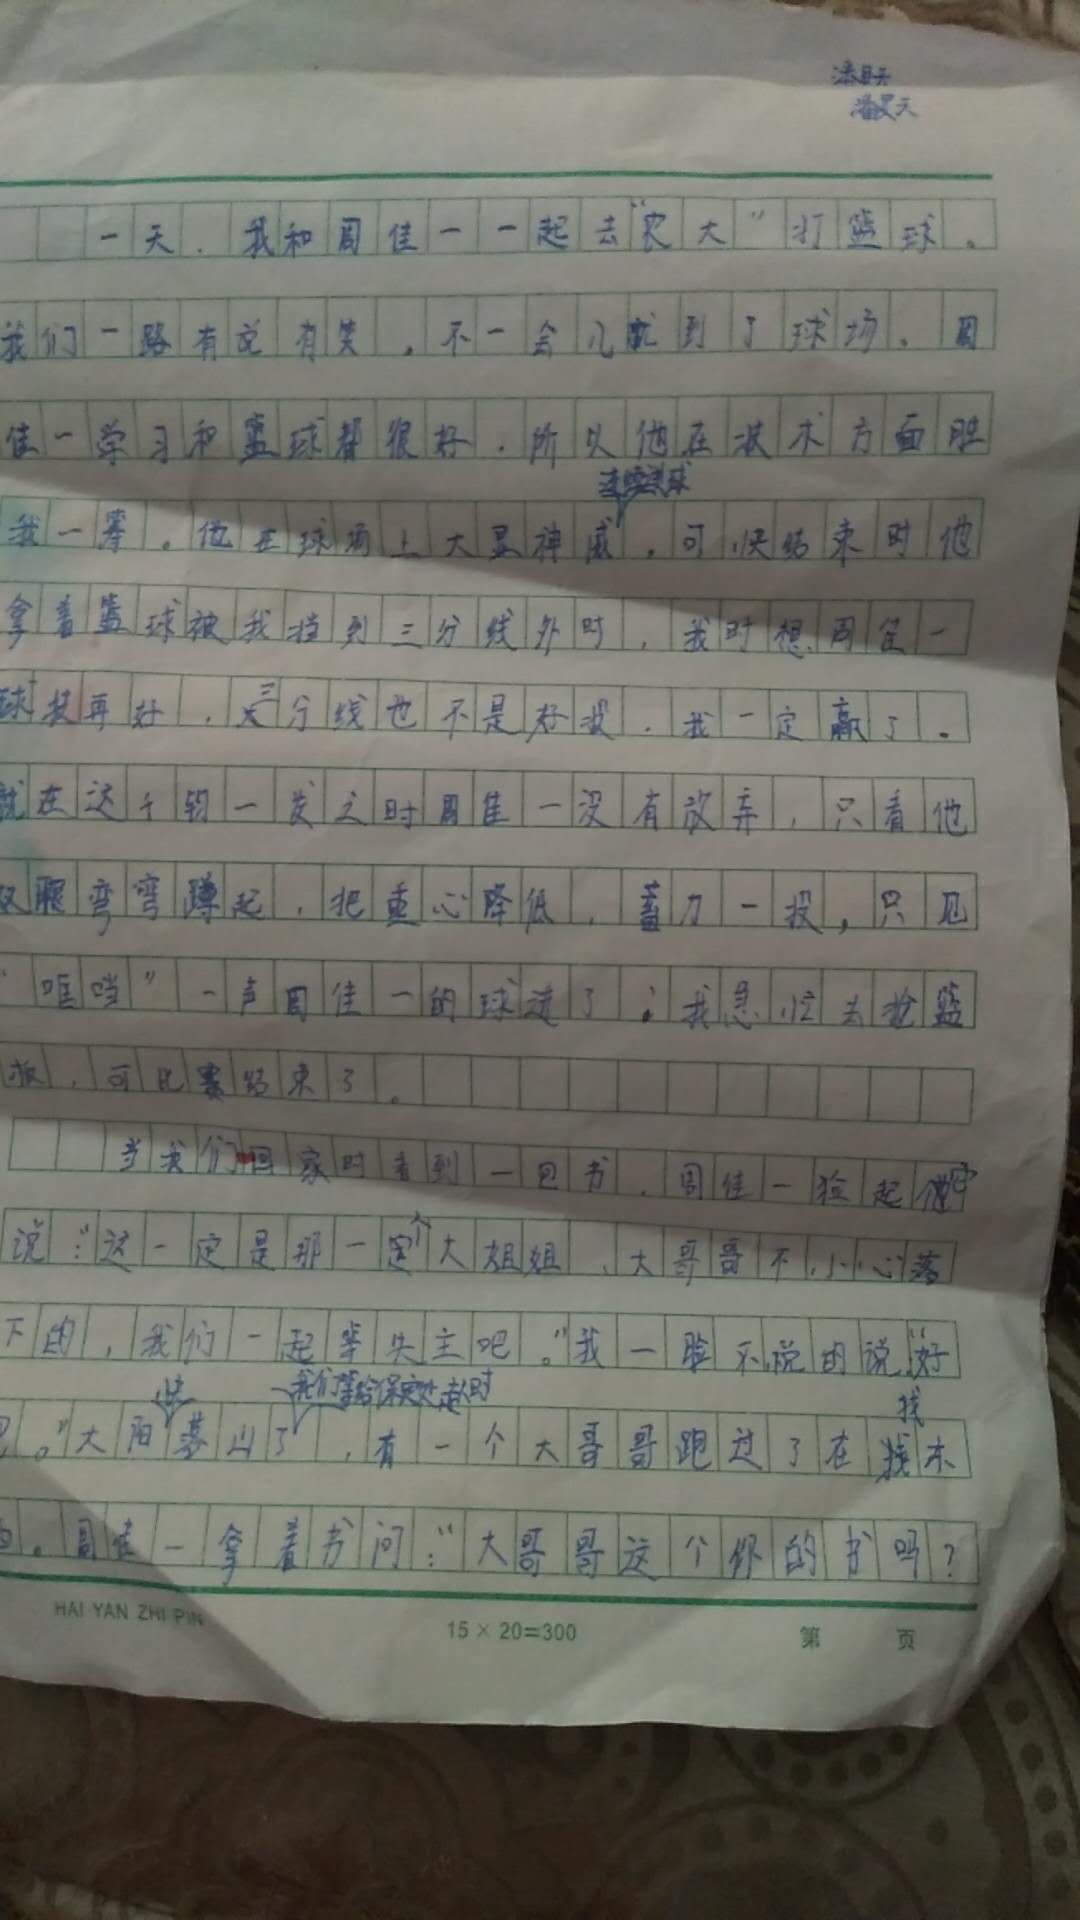 潘昊天
一天，我和周佳一一起去“农大”打篮球。
我们一路有说有笑，不一会儿就到了球场。周
佳一学习和篮球都很好，所以他在技术方面胜
连续进球
我一筹。他在球场上大显神威，可快结束时他
拿着篮球被我挡到三分线外时，我时想周佳一
球技再好，三分线也不是好投，我一定赢了。
就在这千钧一发之时周佳一没有放弃，只看他
双腿弯弯蹲起，把重心降低，蓄力一投，只见
“哐当”一声周佳一的球进了。我急忙去抢篮
板，可比赛结束了。
当我们回家时看到一包书，周佳一捡起它
说：“这一定是那一个大姐姐、大哥哥不小心落
下的，我们一起等失主吧。”我一脸不悦的说“好
我们等给保安处赵时
快 找
吧。”大阳墓山了，有一个大哥哥跑过了在找东
西。周佳一拿着书问：“大哥哥这个你的书吗？
HAI YAN ZHI PIN
15×20=300
第 页